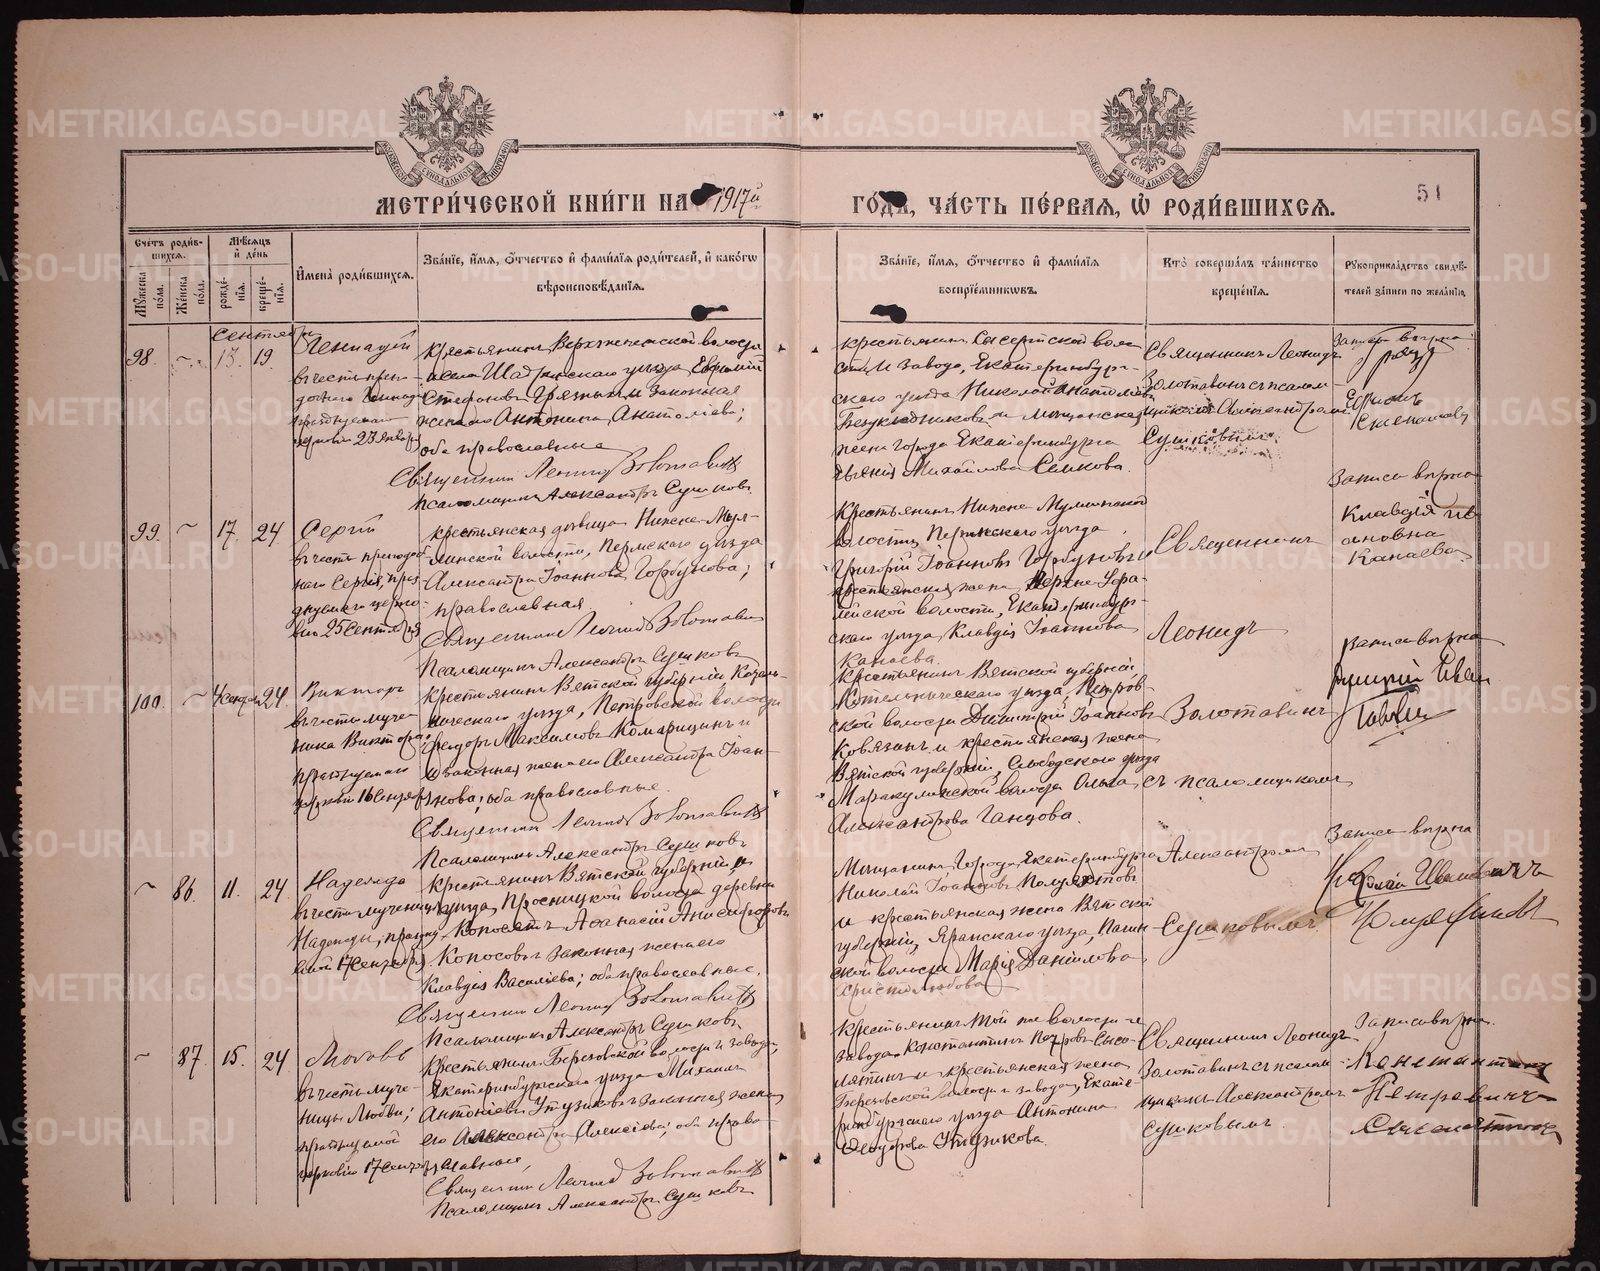 МЕТРИ́ЧЕСКОЙ КНИ́ГИ НА 1917й ГО́ДЪ, ЧА́СТЬ ПЕ́РВАЯ, Ѡ РОДИ́ВШИХСЯ.
51
Сче́тъ роди́в-
шихся.
Му́жеска по́ла.
Же́нска по́ла.
Мѣ́сяцъ и де́нь
рожде́-нія.
креще́-нія.
Имена̀ роди́вшихся.
Зва́ніе, и́мя, о́тчество и фами́лія роди́телей, и како́гѡ
вѣроисповѣ́данія.
Зва́ніе, и́мя, о́тчество и фами́лія
воспріе́мникѡвъ.
Кто̀ соверша́лъ та́инство
креще́нія.
Рукоприкла́дство свидѣ́-
телей за́писи по жела́нію.
Сентябрь
98. 13. 19.
Геннадій
въ честь препо-
добнаго Геннадія
празднуемаго
церковію 23 января
Крестьянинъ Верхтеченской волости
и села Шадринскаго уѣзда Евфимій
Стефановъ Грязныхъ и законная
жена его Антонина Анатоліева;
оба православные
Священникъ Леонид Золотавин
Псаломщикъ Александръ Сушковъ
Крестьянинъ Сысертской воло-
сти и завода, Екатеринбург-
скаго уѣзда Николай Анатоліевъ
и мѣщанская
жена города Екатеринбурга
Евгенія Михайлова Семкова.
Священникъ Леонидъ
Золотавинъ съ псалом-
щикомъ Александромъ
Сушковымъ.
Запись вѣрна
99. 17. 24
Сергій
въ честь преподоб-
наго Сергія, праз-
днуемаго церко-
вію 25 Сентября
Крестьянская дѣвица Нижне-Мул-
линской волости, Пермскаго уѣзда
Александра Іоаннова Горбунова;
православная
Священникъ Леонид Золотавин
Псаломщикъ Александръ Сушковъ
Крестьянинъ Нижне-Муллинской
волости, Пермскаго уѣзда
Григорій Іоанновъ Горбуновъ и
крестьянская жена Верхне-Уфа-
лейской волости, Екатеринбург-
скаго уѣзда, Клавдія Іоаннова
Канаева.
Священникъ
Леонидъ
Запись вѣрна
Клавдія Ив-
ановна
Канаева
100. 4 Сентября 24.
Викторъ
въ честь муче-
ника Виктора
празднуемаго
церковію 16 Сентября
Крестьянинъ Вятской губерніи, Котель-
ническаго уѣзда, Петровской волости
Ѳеодоръ Максимовъ Комарицынъ и
законная жена его Александра Іоан-
нова; оба православные.
Священникъ Леонид Золотавин
Псаломщикъ Александръ Сушковъ
Крестьянинъ Вятской губерніи
Котельническаго уѣзда, Петров-
ской волости Димитрій Іоанновъ
Ковязинъ и крестьянская жена
Вятской губерніи, Слободского уѣзда
волости Ольга
Александрова Ганцова.
Золотавинъ
съ псаломщикомъ
Запись вѣрна
Дмитрій Иван
86. 11. 24
Надежда
въ честь мученицы
Надежды, праздну-
емой 17 Сентября
Крестьянинъ Вятской губерніи и
уѣзда, Просницкой волости деревни
Аѳанасій Анисифоровъ
Колосовъ законная жена его
Клавдія Васильева; оба православные.
Священникъ Леонид Золотавин
Псаломщикъ Александръ Сушковъ
Мѣщанинъ города Екатеринбурга
Николай Іоанновъ Полуектовъ
и крестьянская жена Вятской
губерніи, Яранскаго уѣзда,
ской волости Марія Даніилова
Христолюбова
Александромъ
Сушковымъ.
Запись вѣрна
Николай Ивановичъ
Полуектовъ
87. 15. 24
Любовь
въ честь муче-
ницы Любви;
празднуемой
церковію 17 Сентября
Крестьянинъ Березовской волости и завода,
Екатеринбургскаго уѣзда Михаилъ
Антоніевъ Утузиковъ законная жена
его Александра Алексіева; оба право-
славные,
Священникъ Леонид Золотавин
Псаломщикъ Александръ Сушковъ
Крестьянинъ той же волости и
завода Константинъ Петровъ Сысо-
лятинъ и крестьянская жена
Березовской волости и завода, Екате-
ринбургскаго уѣзда Антонина
Ѳеодорова Утузикова.
Священникъ Леонидъ
Золотавинъ съ псалом-
щикомъ Александромъ
Сушковымъ.
Запись вѣрна.
Константинъ
Петровичъ
METRIKI.GASO-URAL.RU